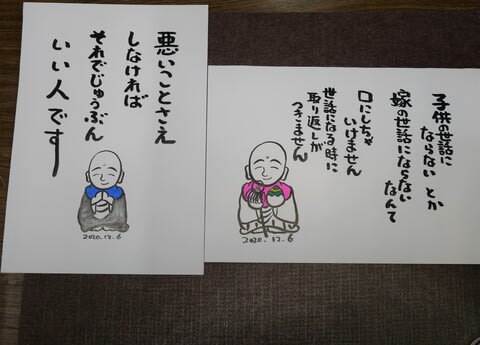 悪いことさえ
しなければ
それでじゅうぶん
いい人です
2020.12.6
子供の世話に
ならないとか
嫁の世話にならない
なんて
口にしちゃ
いけません
世話になる時に
取り返しが
つきません
2020.12.6